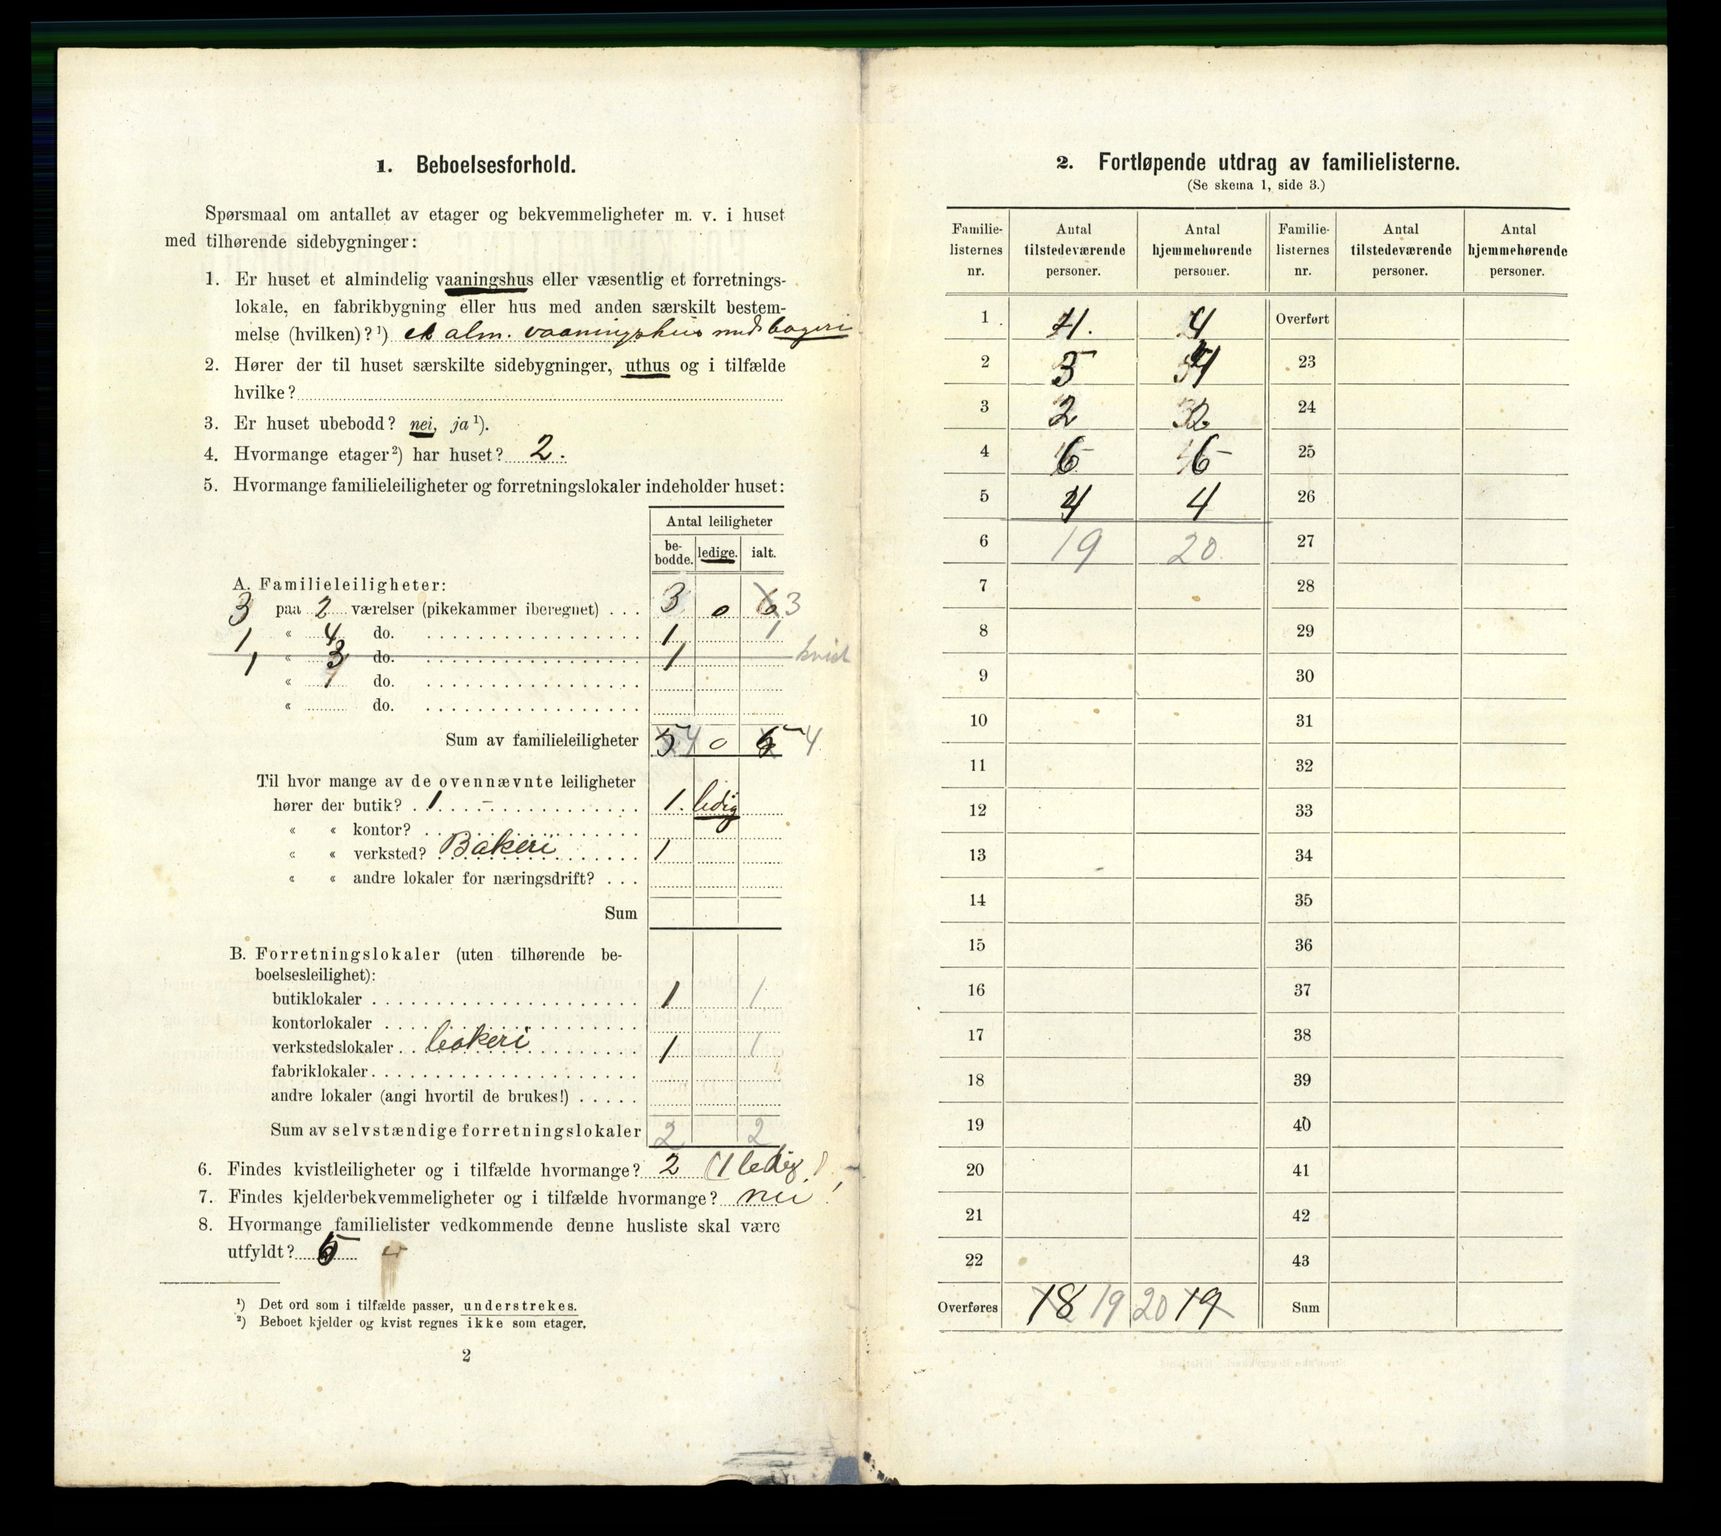 1. Beboelsesforhold.
Spørsmaal om antallet av etager og bekvemmeligheter m. v. i huset
med tilhørende sidebygninger:
1. Er huset et almindelig vaaningshus eller væsentlig et forretnings-
lokale, en fabrikbygning eller hus med anden særskilt bestem-
melse (hvilken)?¹) et alm. vaaningshus med bageri
2. Hører der til huset særskilte sidebygninger, uthus og i tilfælde
hvilke?
3. Er huset ubebodd? nei, ja¹).
4. Hvormange etager²) har huset? 2.
5. Hvormange familieleiligheter og forretningslokaler indeholder huset:
Antal leiligheter
be-
bodde. ledige. ialt.
A. Familieleiligheter:
3 paa 2 værelser (pikekammer iberegnet) . . . 3 0 6 3
1 « 4 do. 1 1
1 « 3 do. 1 kvist
« 1 do.
« do.
Sum av familieleiligheter 5 4 0 5 4
Til hvor mange av de ovennævnte leiligheter
hører der butik? 1 - 1. ledig
« « kontor?
« « verksted? Bakeri 1
« « andre lokaler for næringsdrift? . . .
Sum
B. Forretningslokaler (uten tilhørende be-
boelsesleilighet):
butiklokaler 1 1
kontorlokaler
verkstedslokaler Bakeri 1 1
fabriklokaler
andre lokaler (angi hvortil de brukes!) . . . . .
Sum av selvstændige forretningslokaler 2 2
6. Findes kvistleiligheter og i tilfælde hvormange? 2 (1 ledig)
7. Findes kjelderbekvemmeligheter og i tilfælde hvormange? nei!
8. Hvormange familielister vedkommende denne husliste skal være
utfyldt? 5
¹) Det ord som i tilfælde passer, understrekes.
²) Beboet kjelder og kvist regnes ikke som etager.
2
2. Fortløpende utdrag av familielisterne.
(Se skema 1, side 3.)
Familie-
listernes
nr. Antal
tilstedeværende
personer. Antal
hjemmehørende
personer. Familie-
listernes
nr. Antal
tilstedeværende
personer. Antal
hjemmehørende
personer.
1 4. 4 Overført
2 3 4 23
3 2 2 24
4 6 6 25
5 4 4 26
6 19 20 27
7 28
8 29
9 30
10 31
11 32
12 33
13 34
14 35
15 36
16 37
17 38
18 39
19 40
20 41
21 42
22 43
Overføres 18 19 20 19 Sum